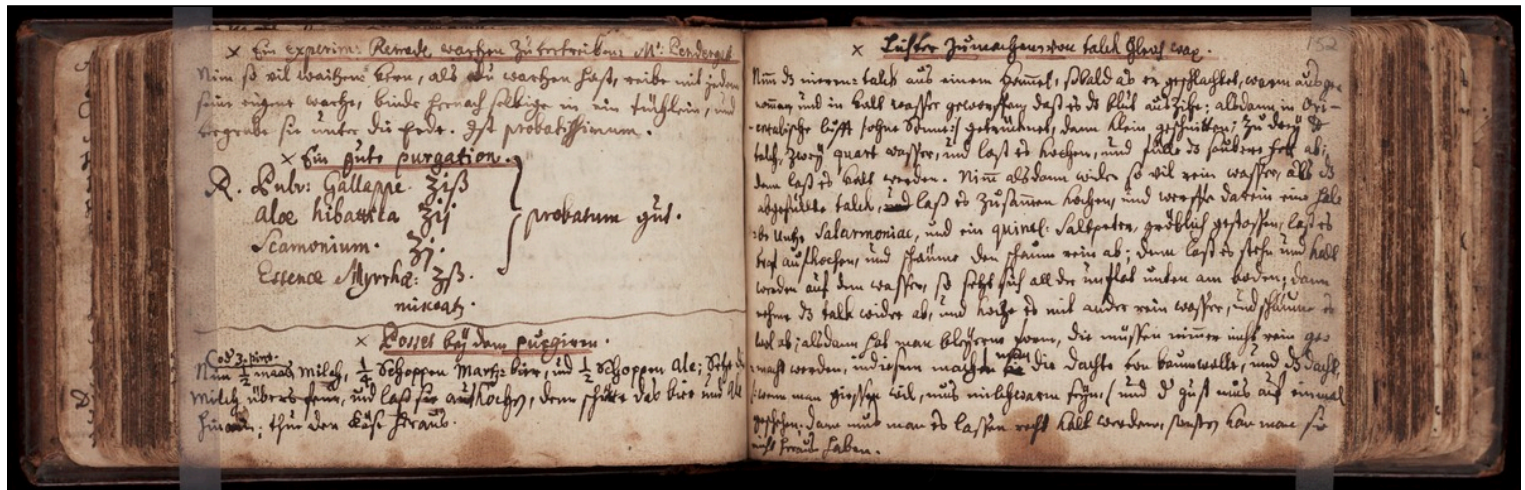 × Ein experim: Remede, wartzen zu vertreiben: Mr: Pendergrast
Nim so vil waitzen kern, als du wartzen hast, reibe mit jedem
seine eigene wartze, binde hernach selbige in ein tüchlein, und
vergrabe sie unter die Erde. Ist probatissimum.
× Ein gute purgation.
R. Pulv: Gallappe. ʒiß
Aloe hibattica ʒij
Scamonium. ʒj.
Essence Myrrhæ: ʒß.
probatum gut.
misceatr.
× Posset beÿ dem purgiren.
Nim 1/2 maas milch, 1/4 Schoppen Martze bier, und 1/2 Schoppen Ale; Setze die
milch übers feur, und lass sie aufkochen, denn schütte das bier und Ale
hinein; thue den Käse heraus.
152
× Liechter zu machen von talch gleich wax.
Nim ds nieren talch aus einem hammel, sobald als er geschlachtet, warm ausge-
nommen und in kalt wasser geworffen, dass es ds blut aus zihe; alsdann in Ori-
-entalische lufft /:ohne Sonne:/ getrücknet, dann klein geschnitten; zu dreÿ lb
talch, zweÿ quart wasser, und lass es kochen, und fülle ds saubere fett ab;
denn lass es kalt werden. Nim alsdann wider so vil rein wasser, als ds
abgefüllte talch, lass es zusammen kochen, und werffe darein eine hal-
-be Untze Salarmoniac, und ein quintl: Salpeter, gröblich gestossen, lass es
aufkochen, und schäume den schaum rein ab; denn lass es stehn und kalt
werden auf dem wasser, so setzt sich all der unflat unten am boden; dann
nehme ds talch wider ab, und koche es mit ander rein wasser, und schäume es
wol ab; alsdann hat man bleÿerne form, die müssen immer recht rein ge-
macht werden, in diesem macht man die dachte von baumwolle, und ds dacht
wenn man giessen wil, mus milchwarm seÿn, (und d guss mus auf einmal
geschehen. dann mus man es lassen recht kalt werden, sonsten kan man sie
nicht heraus haben.